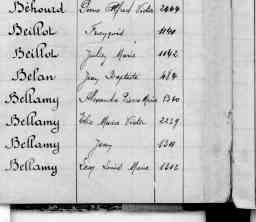 Béhourd Pierre Alfred Victor 2444
Beillot François 1140
Beillot Jules Marie 1142
Belan Jean Baptiste 484
Bellamy Alexandre Pierre Marie 1340
Bellamy Elie Marie Victor 2229
Bellamy Jean 1311
Bellamy Léon Louis Marie 1312